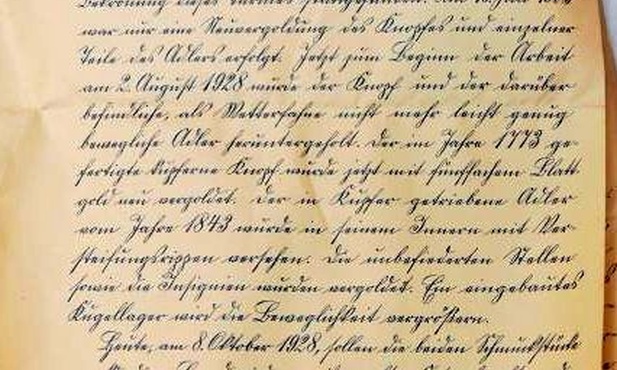 Bekrönung dieses Turmes stattgefunden. Am
war nur eine Neuvergoldung des Knopfes und einzelner
Teile des Adlers erfolgt. Jetzt zum Beginn der Arbeit
am 2. August 1928 wurde der Knopf und der darüber
befindliche, als Wetterfahne nicht mehr leicht genug
bewegliche Adler heruntergeholt. Der im Jahre 1773 ge-
fertigte kupferne Knopf wurde jetzt mit fünffachem Blatt
gold neu vergoldet. Der in Kupfer getriebene Adler
vom Jahre 1843 wurde in seinem Innern mit Ver-
steifungsrippen versehen. Die unbefiederten Stellen
sowie die Insignien wurden vergoldet. Ein eingebautes
Kugellager wird die Beweglichkeit vergrößern.
Heute, am 8. Oktober 1928, sollen die beiden Schmuckstücke